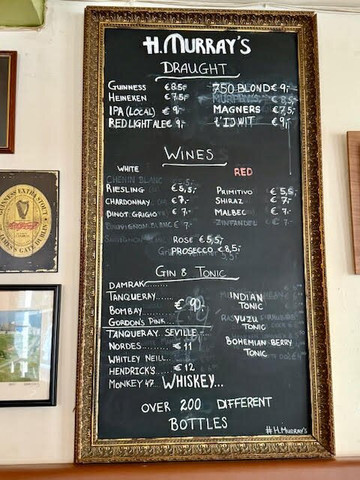 H. MURRAY'S
DRAUGHT
GUINNESS € 8,5,- 750 BLOND € 9,-
HEINEKEN € 7,5,-
IPA (LOCAL) € 9,- MAGNERS € 7,5,-
RED LIGHT ALE € 9,- 'T IJ WIT € 9,-
WINES
WHITE RED
CHENIN BLANC
RIESLING € 5,5,- PRIMITIVO € 5,5,-
CHARDONNAY € 7,- SHIRAZ € 7,-
PINOT GRIGIO € 7,- MALBEC € 7,-
ZINFANDEL € 7,-
ROSE € 5,5,-
PROSECCO € 8,5,-
GIN & TONIC
DAMRAK.........
TANQUERAY.....
BOMBAY......... € 9,- INDIAN TONIC
GORDON'S PINK... YUZU TONIC
TANQUERAY SEVILLE
NORDES..... € 11 BOHEMIAN BERRY TONIC
WHITLEY NEILL...
HENDRICK'S..... € 12
MONKEY 47... WHISKEY...
OVER 200 DIFFERENT
BOTTLES
#H.MURRAY'S
GUINNESS
EXTRA STOUT